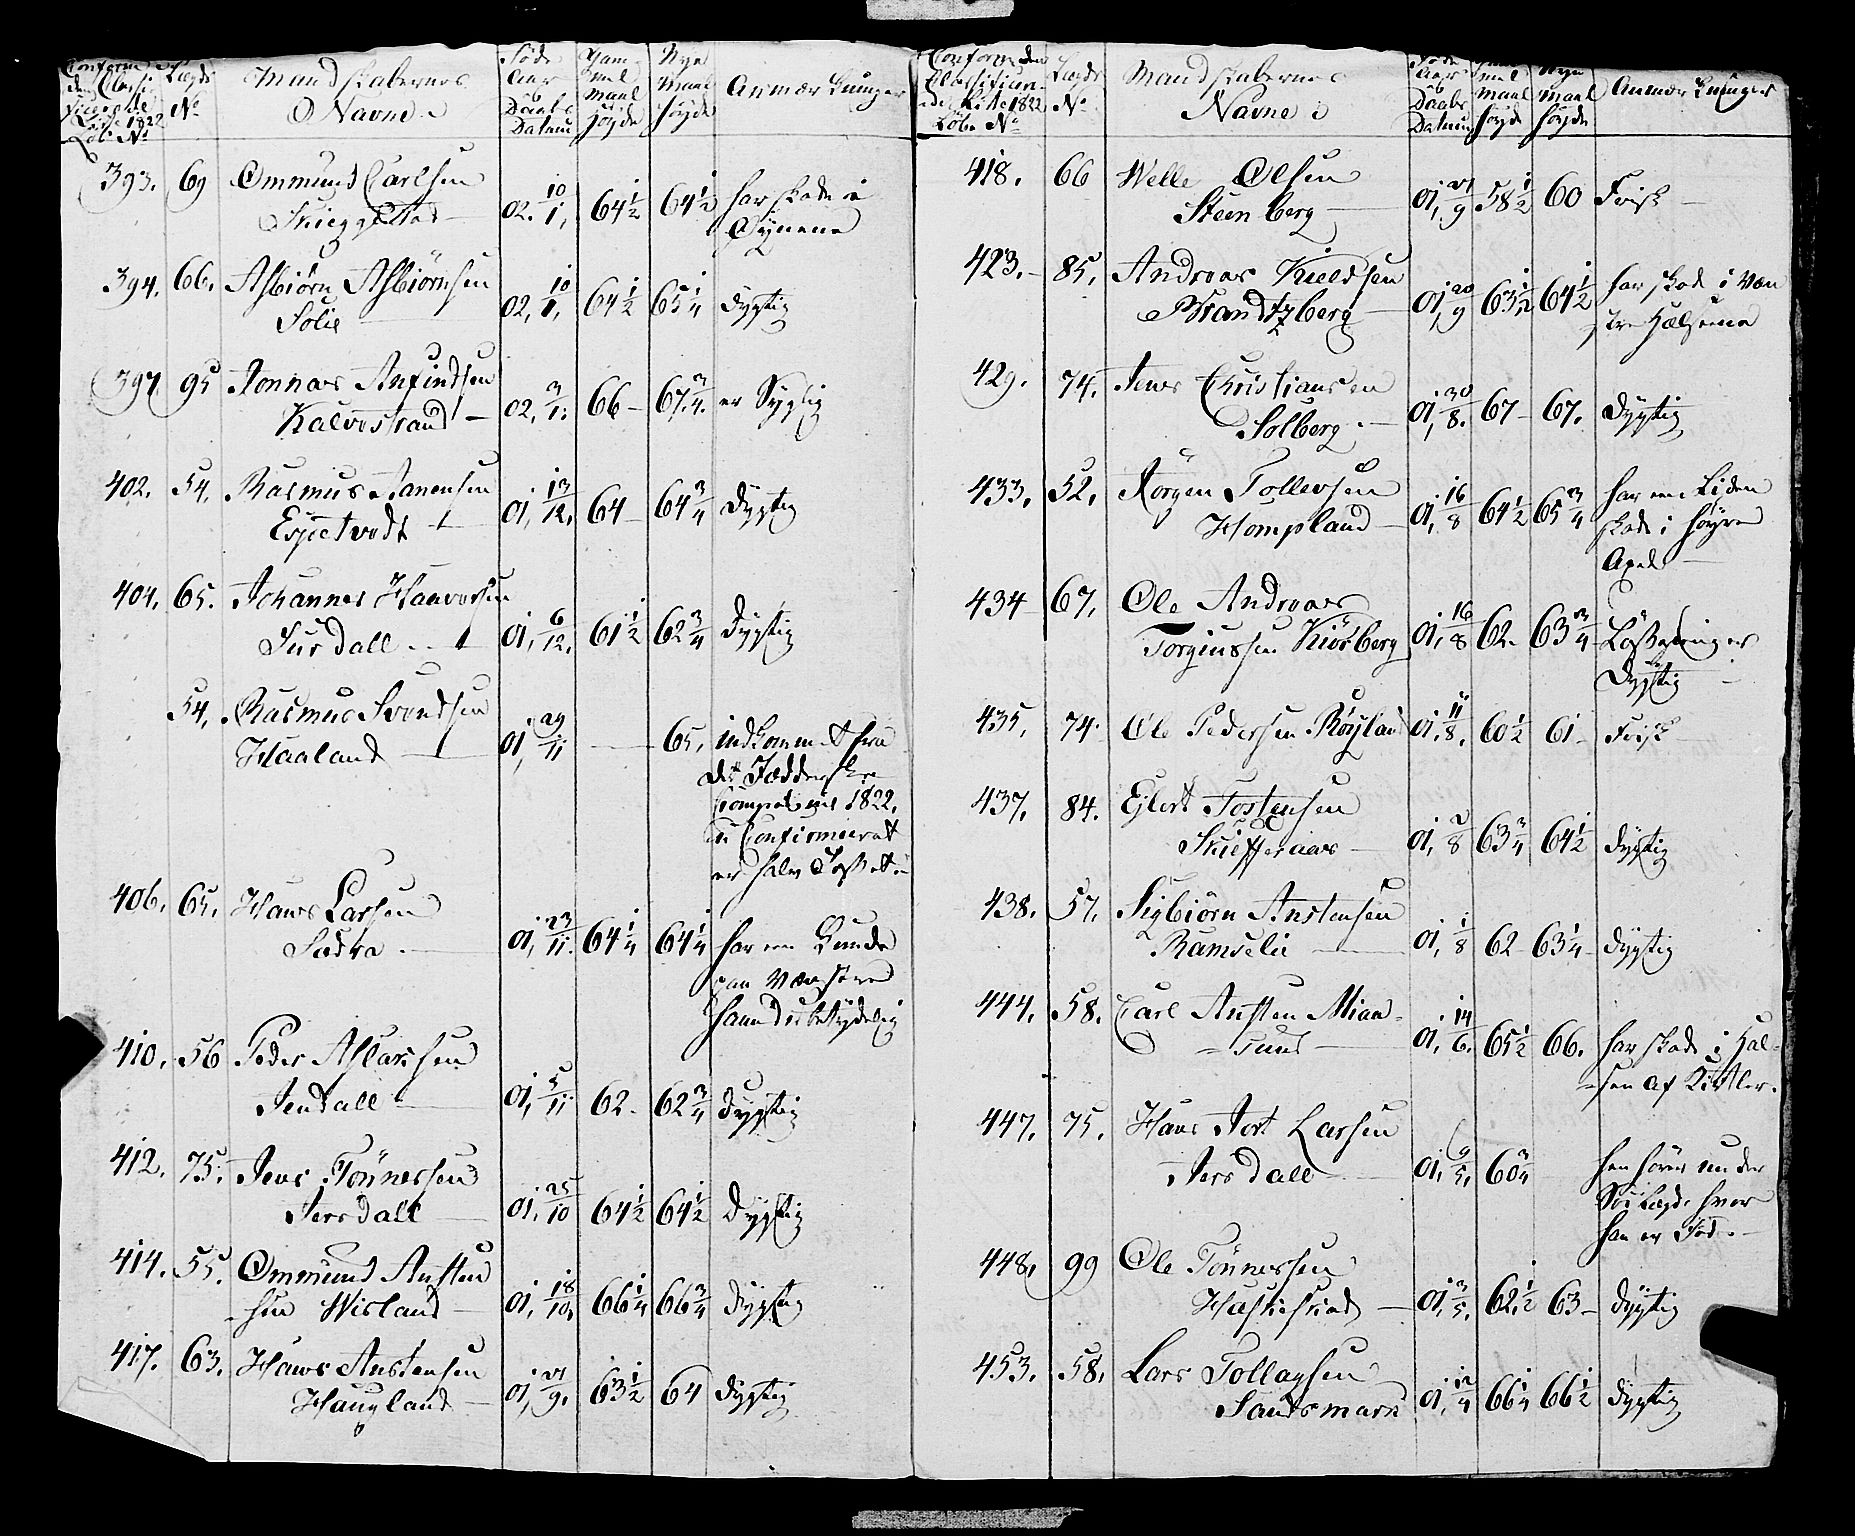 Conform
den Classi-
ficerede
Liste 1822
Løbe No
Lægds
No
Mandskabernes
Navne
Føde
Aar
&
Daabs
Datum
Gam-
mel
Maal
Høyde
Nye
Maal
Høyde
Anmærkninger
393. 69 Ommund Carlsen
Skieggestad
02. 10/1. 64½ 64½ har skade i
Øynene
394. 66. Asbiørn Asbiørnsen
Solie
02, 10/1, 64½ 65¼ dygtig
397. 95 Tonnes Anfindsen
Kalvestrand
02, 3/1. 66 67¾. er Sygelig
402. 54, Rasmus Aanensen
Espetvedt
01, 13/12, 64 64¾ dygtig
404. 65. Johannes Haavorsen
Surdall
01, 6/12. 61½ 62¾ dygtig
54, Rasmus Svendsen
Haaland
01, 29/11 65, indkommet fra
det Jedderske
Compagnie 1822.
u Confirmeret
er halv Tosset
406. 65. Hans Larsen
Sædta
01, 23/11. 64¼ 64¼ har en Skade
paa Venstre
Haand ubetydelig
410. 56 Peder Aslaksen
Jendall
01, 5/11 62. 62¾ dygtig
412. 75. Jens Tønnessen
Jersdall
01. 25/10 64½ 64½ dygtig
414. 55. Ommund Austen
sen Wisland
01, 18/10, 66¼ 66¾ dygtig
417. 63. Hans Austensen
Haugland
01, 21/9. 63½ 64 dygtig
Conform den
Classificer-
ede Liste 1822
Løbe No
Lægds
No
Mandskabernes
Navne
Føde
Aar
&
Daabs
Datum
Gam
mel
Maal
Høyde
Nye
Maal
Høyde
Anmærkninger
418. 66 Welle Olsen
Steenberg
01, 21/9 58½ 60 Frisk
423. 85, Andreas Kieldsen
Brandtzberg
01, 20/9 63½ 64½ har skade i Ven
stre Hælsene
429. 74. Jens Christiansen
Solberg
01, 30/8. 67 67. dygtig
433. 52, Jørgen Tollevsen
Hompland
01, 16/8 64½ 65¾ har en Liden
skade i høyre
Axel
434 67, Ole Andreas
Torgiussen Kiørberg
01, 16/8 62. 63¾
dygtig
435, 74. Ole Pedersen Røysland
01. 11/8. 60½ 61 Frisk
437. 84. Ejlert Tostensen
Skiefferaas
01, 2/8 63¾ 64½ dygtig
438. 57. Sigbiørn Anstensen
Ramslie
01, 1/8 62 63¼ dygtig
444. 58. Carl Austen Mian-
sund
01, 14/6. 65½ 66. har skade i Hal-
sen af Kirtler.
447. 75. Hans Jort Larsen
Jersdall
01. 9/5. 60¾ henhører under
Søe Lægd hvor
han er Fød.
448, 99 Ole Tønnessen
01, 3/5. 62.½ 63 dygtig
453. 58. Lars Tollagsen
Sandsmark
01, 12/4 66¼ 66½ dygtig